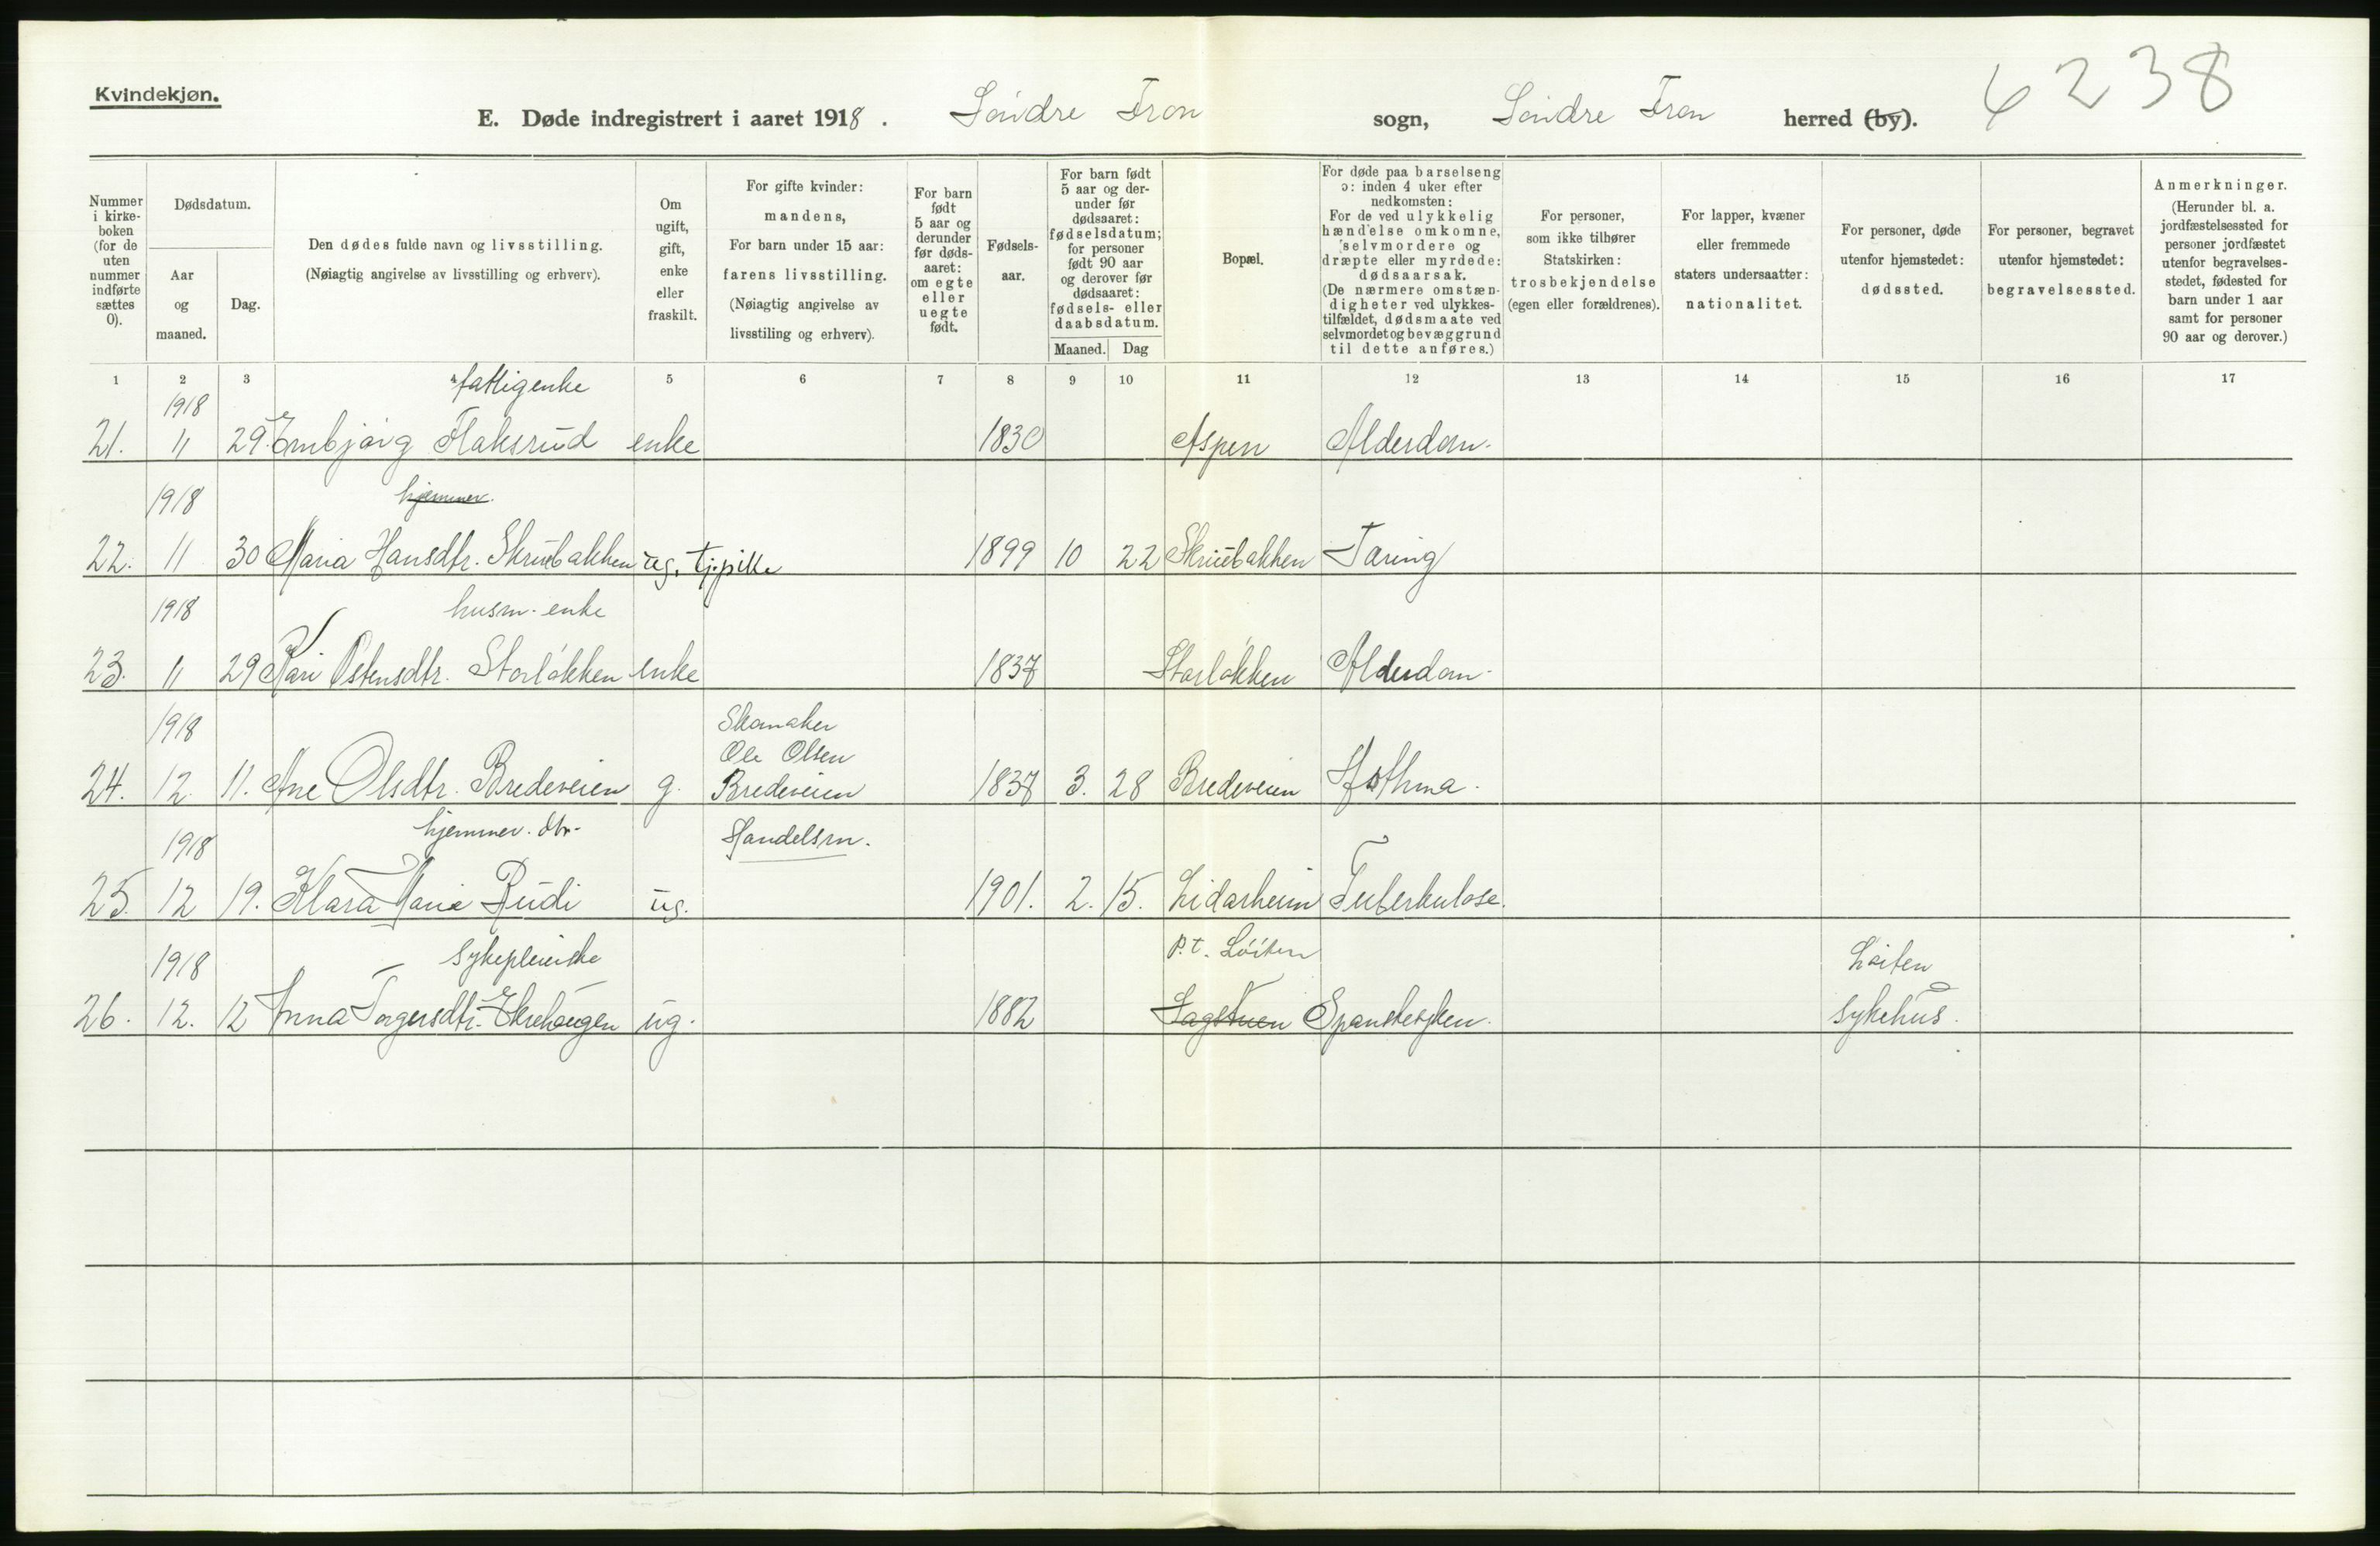 Kvindekjøn.
E. Døde indregistrert i aaret 1918. Söndre Fron sogn, Söndre Fron herred (by). 4238
Nummer i kirke-boken (for de uten nummer indførte sættes 0).
Dødsdatum.
Aar og maaned.
Dag.
Den dødes fulde navn og livsstilling.
(Nøiagtig angivelse av livsstilling og erhverv).
Om ugift, gift, enke eller fraskilt.
For gifte kvinder: mandens,
For barn under 15 aar: farens livsstilling.
(Nøiagtig angivelse av livsstiling og erhverv).
For barn født 5 aar og derunder før døds-aaret: om egte eller uegte født.
Fødsels-aar.
For barn født 5 aar og der-under før dødsaaret: fødselsdatum; for personer født 90 aar og derover før dødsaaret: fødsels- eller daabsdatum.
Maaned. Dag
Bopæl.
For døde paa barselseng ɔ: inden 4 uker efter nedkomsten:
For de ved ulykkelig hændelse omkomne, selvmordere og dræpte eller myrdede: dødsaarsak.
(De nærmere omstæn-digheter ved ulykkes-tilfældet, dødsmaate ved selvmordet og bevæggrund til dette anføres.)
For personer, som ikke tilhører Statskirken: trosbekjendelse (egen eller forældrenes).
For lapper, kvæner eller fremmede staters undersaatter: nationalitet.
For personer, døde utenfor hjemstedet: dødssted.
For personer, begravet utenfor hjemstedet: begravelsessted.
Anmerkninger.
(Herunder bl. a. jordfæstelsessted for personer jordfæstet utenfor begravelses-stedet, fødested for barn under 1 aar samt for personer 90 aar og derover.)
1 2 3 4 5 6 7 8 9 10 11 12 13 14 15 16 17
1918 fattigenke
21. 11 29. Embjörg Flaksrud enke 1830 Aspen Alderdom.
1918 hjemmev.
22. 11 30 Maria Hansdtr. Skrubakken ug. tj.pike 1899 10 22 Skrubakken Tæring
1918 husm. enke
23. 11 29 Kari Östensdtr. Storlökken enke 1837 Storlökken Alderdom.
1918 Skomaker
Ole Olsen
24. 12. 11. Ane Olsdtr. Bredeveien g. Bredeveien 1837 3. 28 Bredeveien Asthma.
1918 hjemmev. dtr. Handelsm.
25. 12 19. Klara Marie Rudi ug. 1901. 2. 15. Lidarheim Tuberkulose.
1918 sykepleierske P.t. Löiten Löiten
26. 12. 12 Anna Torgersdtr. Ekrehaugen ug. 1882 Lagstuen Spanskesyken. sykehus.